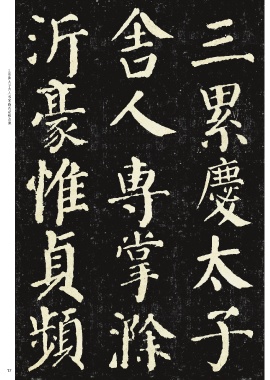 三累慶太子
舍人專掌滁
沂豪惟貞頻